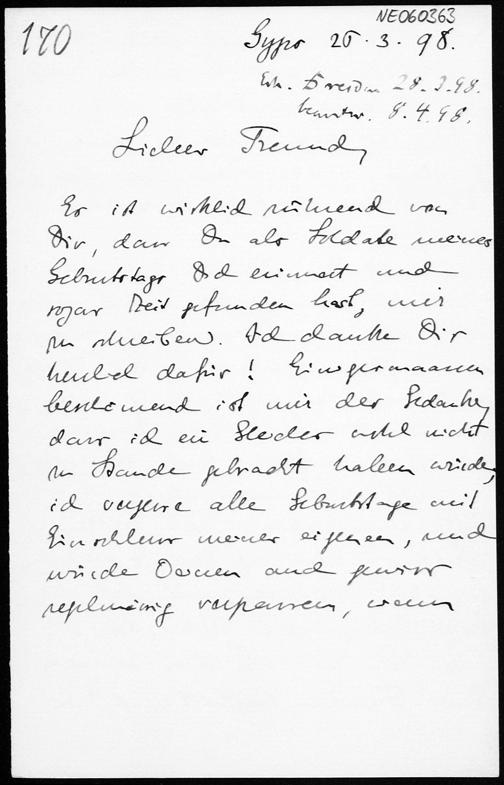 170
NE060363
Gyps 25.3.98.
Erh. Dresden 28.3.98.
beantw. 8.4.98.
Lieber Freund,
Es ist wirklich rührend von
Dir, dass Du als Soldat meines
Geburtstags Dich erinnert und
sogar Zeit gefunden hast, mir
zu schreiben. Ich danke Dir
herzlich dafür! Einigermaassen
beschämend ist mir der Gedanke,
dass ich ein Gleiches wohl nicht
zu Stande gebracht haben würde,
ich vergesse alle Geburtstage mit
Einschluss meiner eigenen, und
würde Deinen auch gewiss
regelmässig verpassen, wenn